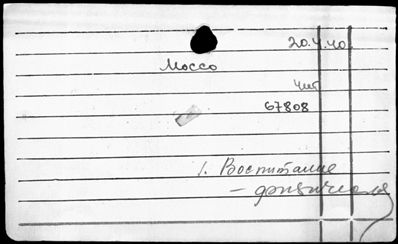 20.4.40.
Моссо
чит
67808
1. Воспитание
– физическое